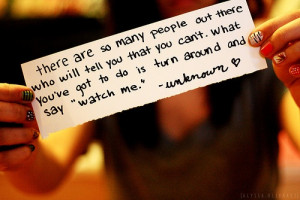 there are so many people out there
who will tell you that you can't. what
you've got to do is turn around and
say "watch me." -unknown ♡